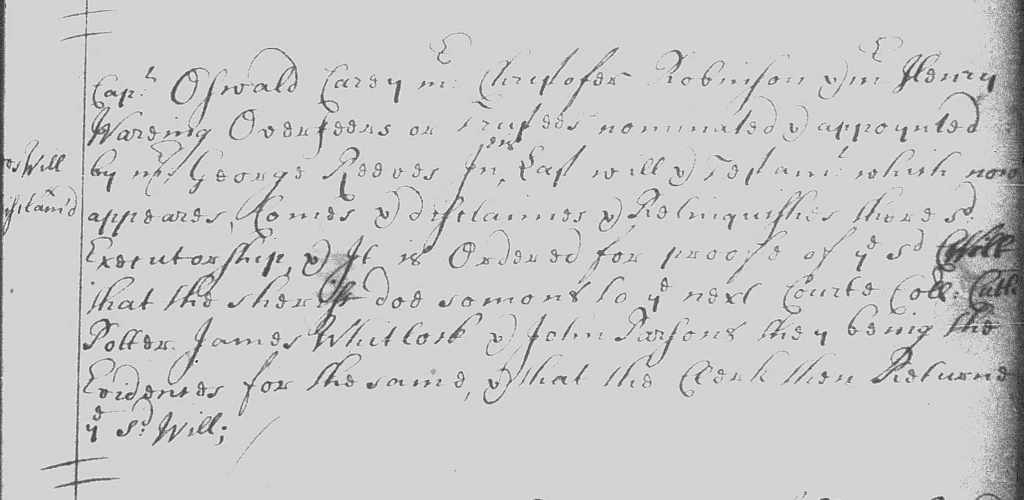 Capt. Oswald Carey mr. Christofer Robinson & mr Henry
Wareing Overseers or Trustees nominated & appoynted
by mr George Reeves In his Last will & Testamt. which now
es Will
appeares, Comes & disclaimes & Relinquishes there sd.
disclaim'd
Executorship, & It is Ordered for proofe of ye sd Will
that the sheriff doe somons to ye next Courte Coll: Cuth:
Potter James Whitlock & John Parsons they being the
Evidences for the same, & that the Clerk then Returne
ye sd. Will;